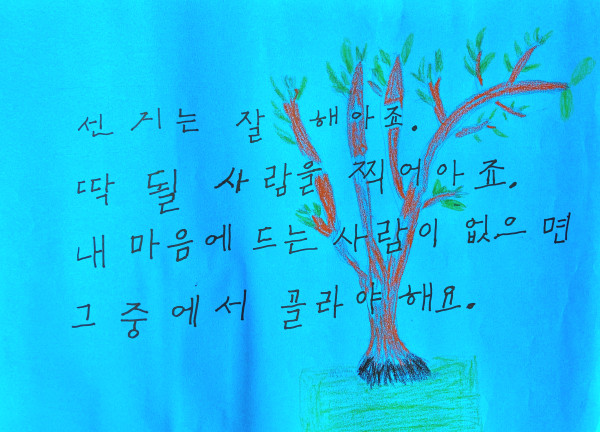 선거는 잘 해아죠.
딱 될 사람을 찍어아죠.
내 마음에 드는 사람이 없으면
그 중에서 골라야 해요.